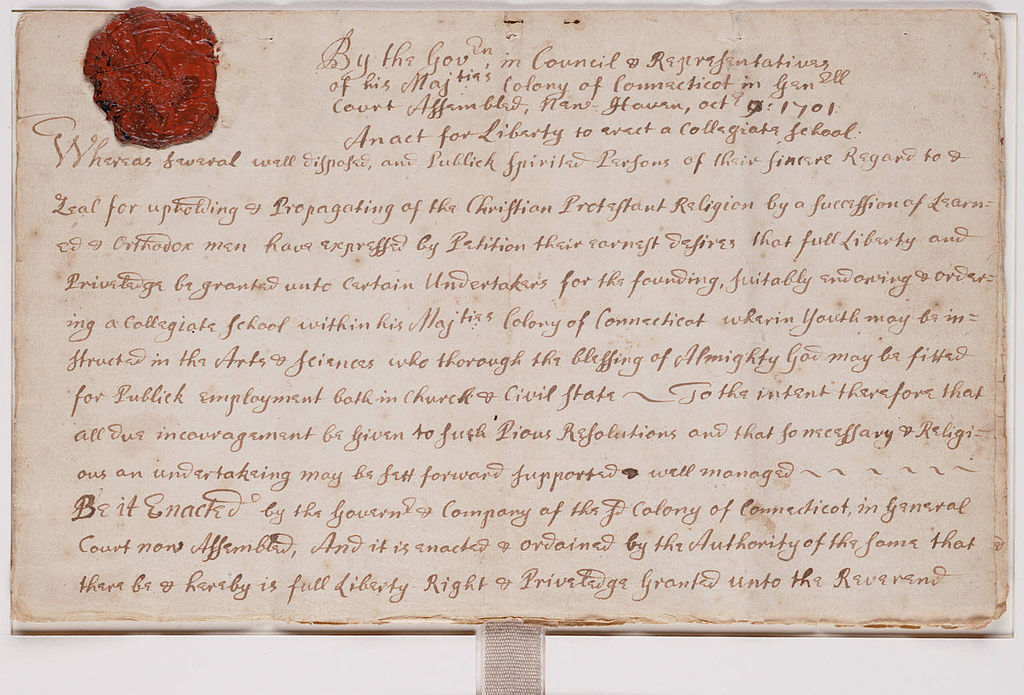 By the Govrn, in Council & Representatives
of his Majties Colony of Connecticot in Genrll
Court Assembled, New-Haven, octr 9: 1701
An act for Liberty to erect a Collegiate School.
Whereas several well disposed, and Publick spirited Persons of their sincere Regard to &
Zeal for upholding & Propagating of the Christian Protestant Religion by a succession of Learn-
ed & Orthodox men have expressed by Petition their earnest desires that full Liberty and
Priveledge be granted unto Certain Undertakers for the founding, suitably endowing & order-
ing a Collegiate School within his Majties Colony of Connecticot wherin Youth may be in-
structed in the Arts & Sciences who thorough the blessing of Almighty God may be fitted
for Publick employment both in Church & Civil State To the intent therefore that
all due incouragement be Given to such Pious Resolutions and that so necessary & Religi-
ous an undertakeing may be sett forward supported & well managed
Be it Enacted by the Governr & Company of the sd Colony of Connecticot, in General
Court now Assembled, And it is enacted & ordained by the Authority of the same that
there be & hereby is full Liberty Right & Priveledge Granted unto the Reverend